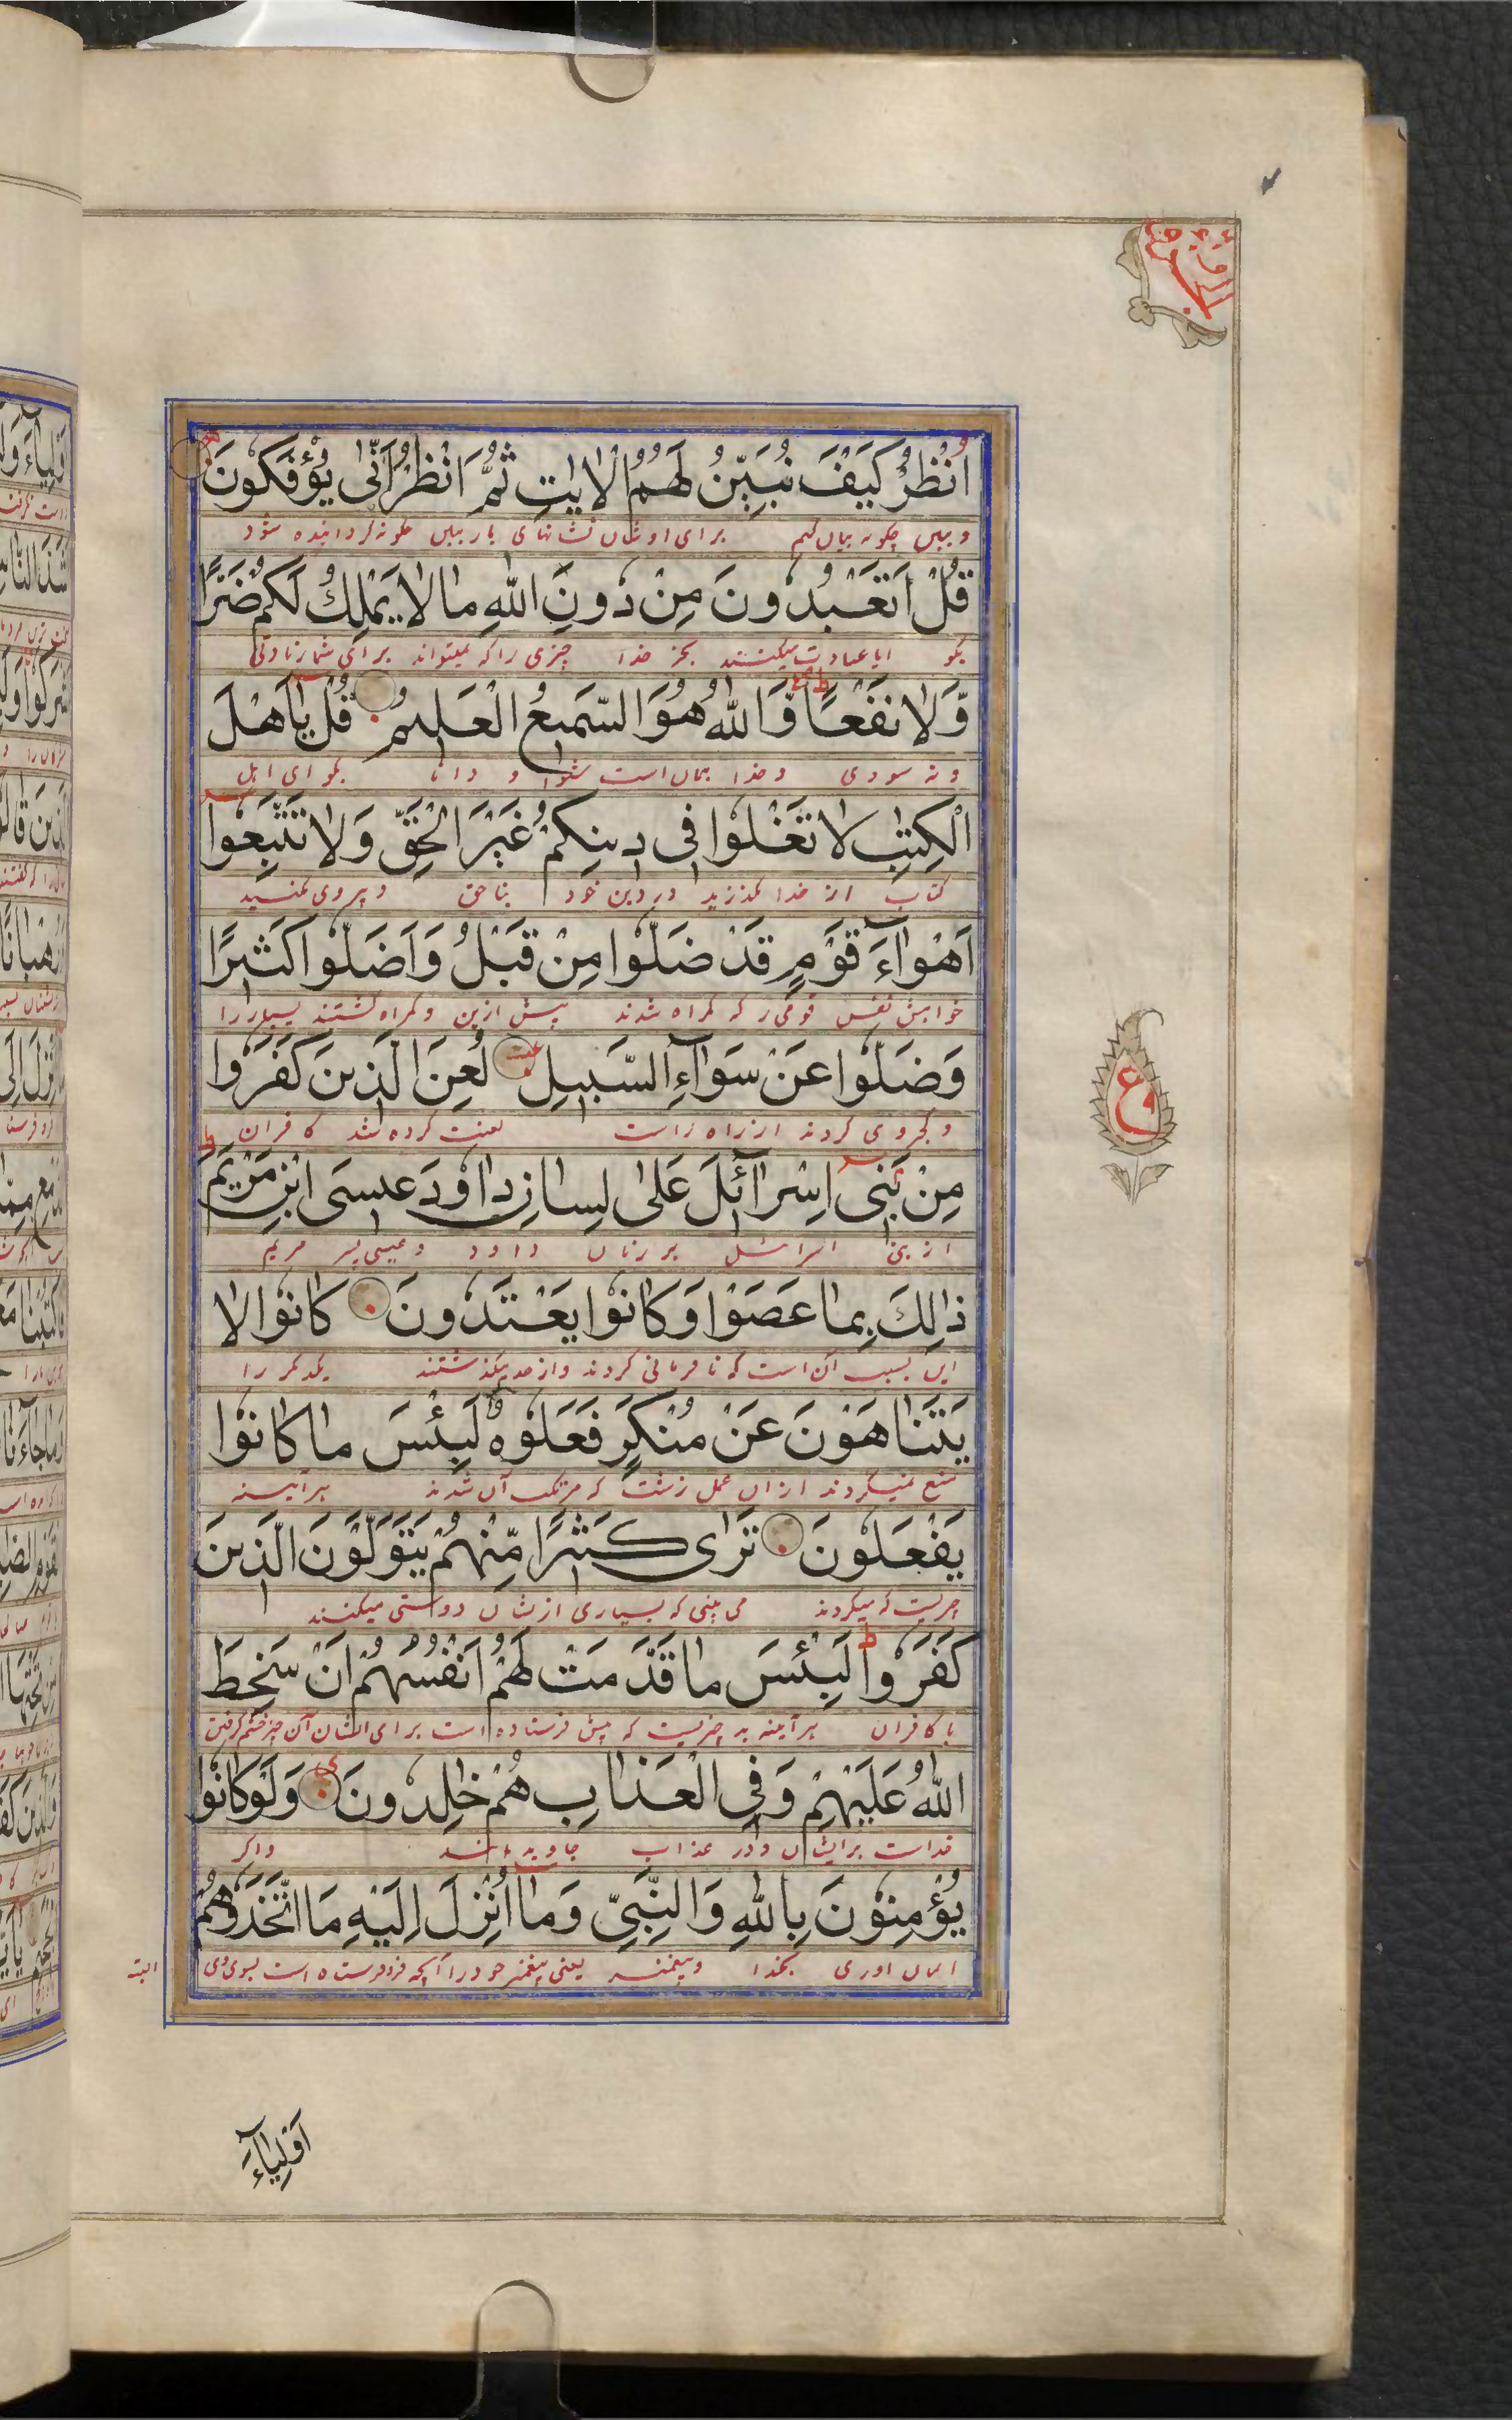 اُنْظُرْ كَيْفَ نُبَيِّنُ لَهُمُ الْاٰيٰتِ ثُمَّ انْظُرْ اَنّٰى يُؤْفَكُونَ
و ببین چگونه بیان کنیم برای اوشان نشانهای بار ببین چگونه گردانیده شود
قُلْ اَتَعْبُدُونَ مِنْ دُونِ اللّٰهِ مٰا لٰا يَمْلِكُ لَكُمْ ضَرًّا
بگو ایا عبادت میکنند بجز خدا چیزی را که نمیتواند برای شمار
وَّلٰا نَفْعًا وَّاللّٰهُ هُوَ السَّمِيعُ الْعَلِيمُ قُلْ يٰاَهْلَ
و نه سودی و خدا همان است شنوا و دانا بگو ای اهل
الْكِتٰبِ لٰا تَغْلُوا فِى دِينِكُمْ غَيْرَ الْحَقِّ وَلٰا تَتَّبِعُوا
کتاب از خدا مگذرید در دین خود بناحق و پیروی مکنید
اَهْوٰآءَ قَوْمٍ قَدْ ضَلُّوا مِنْ قَبْلُ وَاَضَلُّوا كَثِيرًا
خواهش نفس قومی را که گمراه شدند پیش ازین و گمراه گشتند بسیار را
وَضَلُّوا عَنْ سَوٰآءِ السَّبِيلِ لُعِنَ الَّذِينَ كَفَرُوا
و کجروی کردند از راه راست لعنت کرده شد کافران
مِنْ بَنِى اِسْرٰآئِلَ عَلٰى لِسٰانِ دٰاوُدَ عِيسَى ابْنِ مَرْيَمَ
از بنی اسرائیل بر زبان داود و عیسی پسر مریم
ذٰلِكَ بِمٰا عَصَوْا وَكٰانُوا يَعْتَدُونَ كٰانُوا لٰا
این بسبب آن است که نافرمانی کردند و از حد میگذشتند یکدیگر را
يَتَنٰاهَوْنَ عَنْ مُنْكَرٍ فَعَلُوهُ لَبِئْسَ مٰا كٰانُوا
منع نمیکردند از ان عمل زشت که مرتکب آن شدند هرآیینه
يَفْعَلُونَ تَرٰى كَثِيرًا مِّنْهُمْ يَتَوَلَّوْنَ الَّذِينَ
چیزیست که میکردند می بینی که بسیاری ازیشان دوستی میکنند
كَفَرُوا لَبِئْسَ مٰا قَدَّمَتْ لَهُمْ اَنْفُسُهُمْ اَنْ سَخِطَ
با کافران هرآیینه بد چیزیست که پیش فرستاده است برای ایشان آن چیز خشم گرفتن
اللّٰهُ عَلَيْهِمْ وَفِى الْعَذٰابِ هُمْ خٰلِدُونَ وَلَوْ كٰانُوا
خداست برایشان و در عذاب جاوید واگر
يُؤْمِنُونَ بِاللّٰهِ وَالنَّبِيِّ وَمٰا اُنْزِلَ اِلَيْهِ مَا اتَّخَذُوهُمْ
ایمان اوری بخدا و پیغمبر یعنی پیغمبر خود را آنچه فرو فرستاده است بسوی وی البته
ع
اَوْلِيٰآءَ